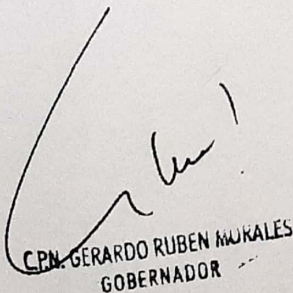 C.P.N. GERARDO RUBEN MORALES
GOBERNADOR